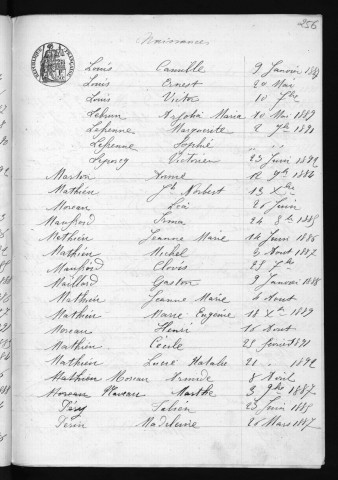 256
Naissances
RÉPUBLIQUE FRANÇAISE
Louis Camille 9 Janvier 1889
Louis Ernest 20 Mai
Louis Victor 10 7bre
Lebrun Maria 10 Mai 1889
Lepenne Marguerite 2 7bre 1891
Lepenne Sophie
Leporcq Victorien 23 Juin 1892
Marton Anna 12 9bre 1884
Mathieu Jh Norbert 13 Xbre
Moreau Léa 26 Juin
Maupord Irma 24 8bre 1885
Mathieu Jeanne Marie 14 Juin 1886
Mathieu Michel 3 Aout 1887
Maupord Clovis
Maillard Gaston 9 Janvier 1888
Mathieu Jeanne Marie 4 Aout
Mathieu Marie Eugénie 18 Xbre 1889
Moreau Henri 10 Aout
Mathieu Cécile 28 février 1891
Mathieu Lucie Natalie 21 1892
Mathieu Moreau 8 Avril
Moreau Marthe 3 9bre 1887
Péry Fabien 23 Juin 1885
Perin Madeleine 26 Mars 1887